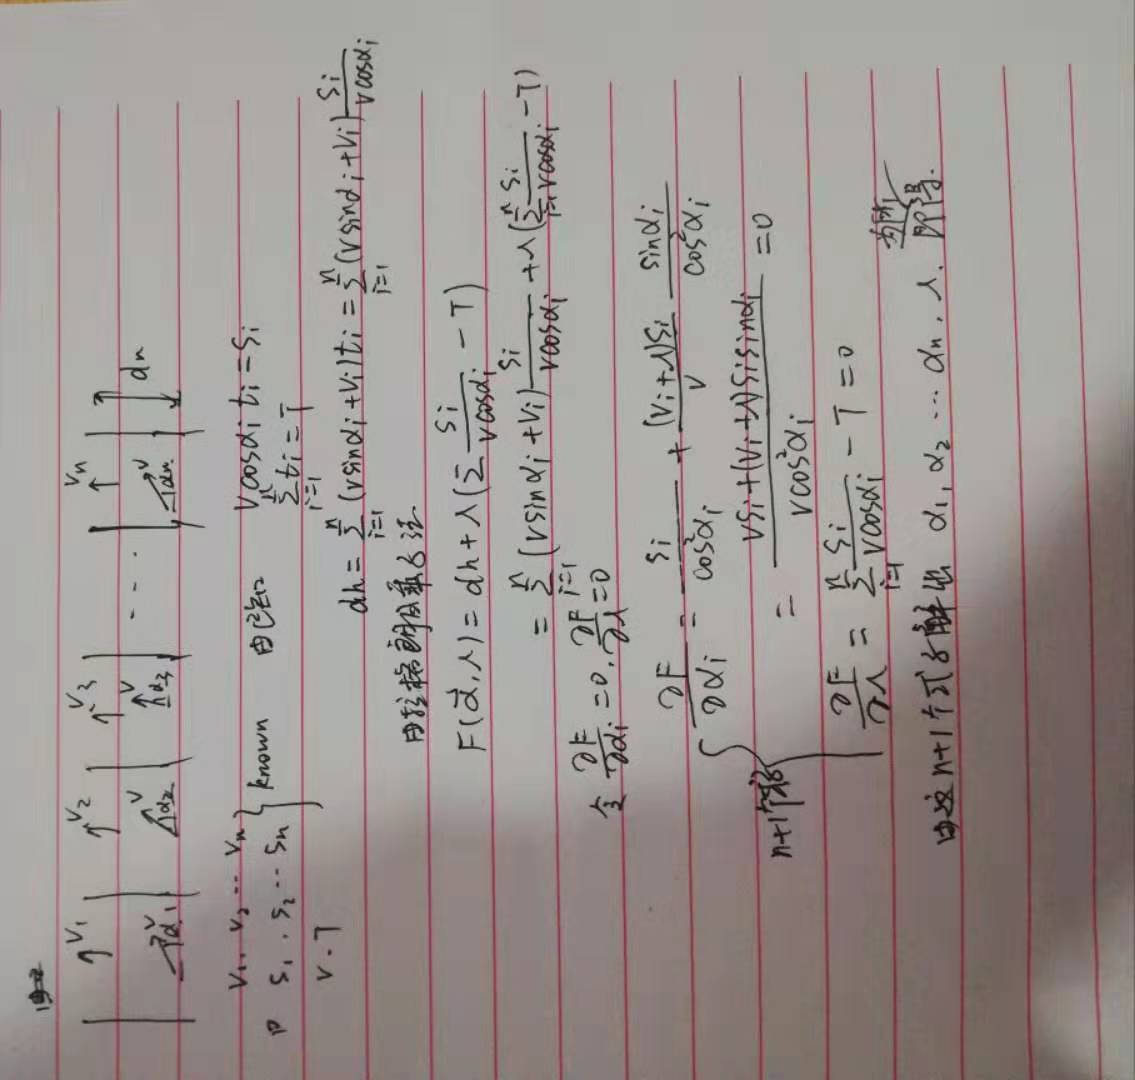 V₁ V₂ V₃ Vn
V α₁ V α₂ V α₃ ... V αn. dn
V₁. V₂ ... Vn
S₁. S₂ ... Sn } known 由已知 Vcosαᵢ tᵢ = Sᵢ
V. T
∑ᵢ₌₁ⁿ tᵢ = T
dh = ∑ᵢ₌₁ⁿ (Vsinαᵢ + Vᵢ)tᵢ = ∑ᵢ₌₁ⁿ (Vsinαᵢ + Vᵢ) Sᵢ/(Vcosαᵢ)
由拉格朗日乘子法.
F(α⃗, λ) = dh + λ(∑ Sᵢ/(Vcosαᵢ) - T)
= ∑ᵢ₌₁ⁿ (Vsinαᵢ + Vᵢ) Sᵢ/(Vcosαᵢ) + λ(∑ᵢ₌₁ⁿ Sᵢ/(Vcosαᵢ) - T)
令 ∂F/∂αᵢ = 0. ∂F/∂λ = 0
∂F/∂αᵢ = Sᵢ/cos²αᵢ + (Vᵢ+λ)Sᵢ/V sinαᵢ/cos²αᵢ
n+1个式子 { = (VSᵢ + (Vᵢ+λ)Sᵢsinαᵢ)/(Vcos²αᵢ) = 0
∂F/∂λ = ∑ᵢ₌₁ⁿ Sᵢ/(Vcosαᵢ) - T = 0
由这n+1个式子解出 α₁, α₂ ... αn. λ. 即得.